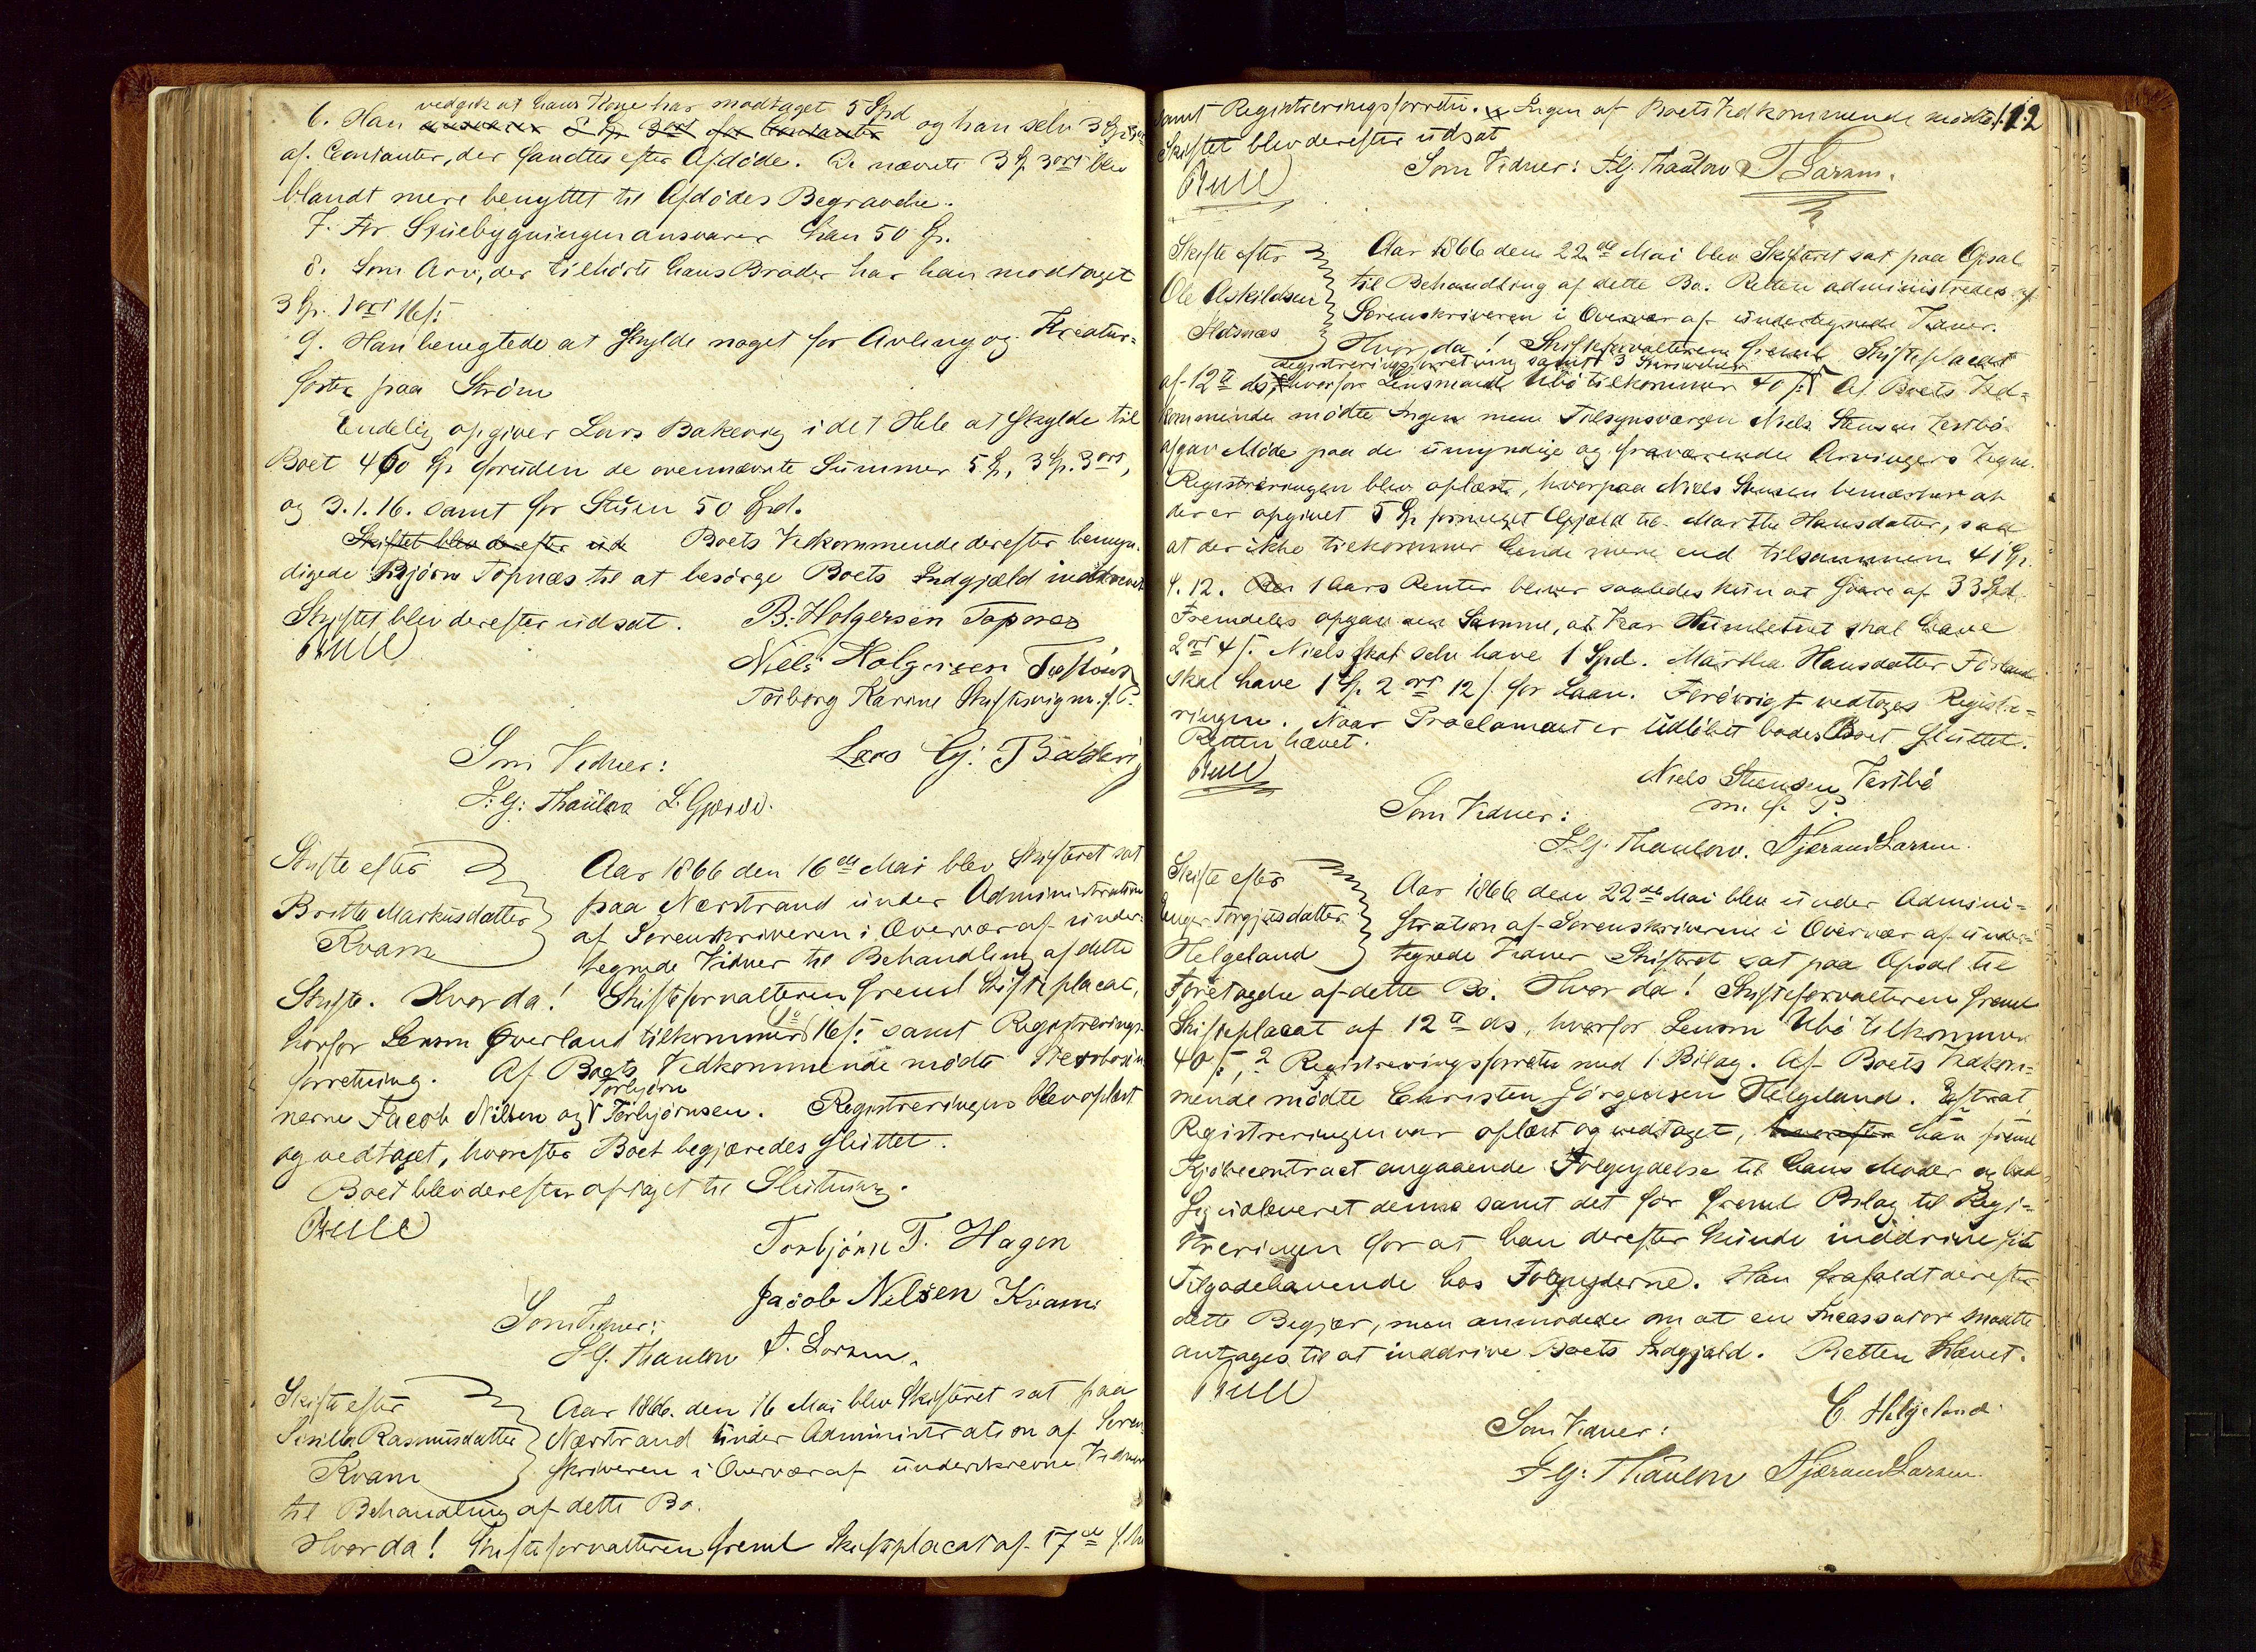 6. Han vedgik at hans Kone har modtaget 5 Spd og han selv 3 Sp. 3 ort
af Contanter, der fandtes efter Afdøde. De nævnte 3 Sp. 3 ort blev
blandt mere benyttet til Afdødes Begravelse.
7. For Stuebygningen ansvarer han 50 Sp.
8. Som Arv, der tilhørte hans Broder har han modtaget
3 Sp. 1 ort 16 s:
9. Han benegtede at skylde noget for Avling og Kreatur-
foster paa Strøm
Endelig opgiver Lars Bakevig i det Hele at skylde til
Boet 460 Sp foruden de ovennævnte Summer 5 Sp, 3 Sp. 3 ort,
og 3. 1. 16. samt for Stuen 50 Spd.
Skiftet blev derefter ud Boets Vedkommende derefter bemyn-
digede Bjørn Topnæs til at besørge Boets Indgjæld inddrevet
Skiftet blev derefter udsat. B. Holgersen Topnæs
Bull
Niels Holgersen
Torborg Karine m. f. P.
Lars Gj. Bakevig
Som Vidner:
F. G: Thaulow L. Gjerde.
Skifte efter
Britta Markusdatter
Kvam
Aar 1866 den 16de Mai blev Skifteret sat
paa Nerstrand under Administration
af Sorenskriveren i Overvær af under-
tegnede Vidner til Behandling af dette
Skifte. Hvor da! Skifteforvalteren freml Skifteplacat,
hvorfor Lensm Øverland tilkommer 16 s: samt Registrerings-
forretning. Af Boets Vedkommende mødte
nerne Jacob Nilsen og Torbjørn Torbjørnsen. Registreringen blev oplæst
og vedtaget, hvorefter Boet begjæredes sluttet.
Boet blev derefter optaget til Slutning.
Bull
Torbjørn T. Hagen
Jacob Nilsen Kvam
Som Vidner:
F G. Thaulow T. Larsen.
Skifte efter
Rasmusdatter
Kvam
Aar 1866. den 16 Mai blev Skifteret sat paa
Nerstrand under Administration af Soren-
skriveren i Overvær af underskrevne Vidner
til Behandling af dette Bo.
Hvor da! Skifteforvalteren freml Skifteplacat af 17de
112
samt Registreringsforretn. Ingen af Boets Vedkommende mødte.
Skiftet blev derefter udsat
Bull
Som Vidner: F. G. Thaulow T Larsen.
Skifte efter
Ole Askildsen
Aar 1866 den 22de Mai blev Skifteret sat paa Opsal
til Behandling af dette Bo. Retten administredes af
Sorenskriveren i Overvær af undertegnede Vidner.
Hvor da! Skifteforvalteren freml Skifteplacat
registreringsforretning samt 3 Skrivelser
af 12te ds, hvorfor Lensmand Ubø tilkommer 40 s: Af Boets Ved-
kommende mødte Ingen men Tilsynsværgen Niels Stensen Vestbø
afgav Møde paa de umyndige og fraværende Arvingers Vegne.
Registreringen blev oplæst, hvorpaa Niels Stensen bemærkede at
der er opgivet 5 Sp formeget Gjæld til Marthe Hansdatter, saa
at der ikke tilkommer hende mere end tilsammen 41 Sp.
4. 12. 1 Aars Renter bliver saaledes kun at svare af 33 Spd.
Fremdeles opgav den Samme, at skal have
2 ort 4 s. Niels skal selv have 1 Spd. Martha Hansdatter Førland
skal have 1 Sp. 2 ort 12 s. for Laan. Forøvrigt vedtoges Registre-
ringen. Naar Proclamaet er udløbet bades Boet sluttet.
Retten hævet.
Bull
Niels Steensen Vestbø
m. f. P.
Som Vidner:
F. G. Thaulow. Njæraud Larsen.
Skifte efter
Torgjusdatter
Helgeland
Aar 1866 den 22de Mai blev under Admini-
stration af Sorenskriveren i Overvær af under-
tegnede Vidner Skifteret sat paa Opsal til
Foretagelse af dette Bo. Hvor da! Skifteforvalteren freml
Skifteplacat af 12te ds, hvorfor Lensm Ubø tilkommer
40 s:, 2 Registreringsforretn med 1 Bilag. Af Boets Vedkom-
mende mødte Christen Jørgensen Helgeland. Efterat
Registreringen var oplæst og vedtaget, hvorefter han freml
Kjøbecontract angaaende Folgeydelse til hans Moder og bad
sig udleveret denne samt det før freml Bilag til Regi-
streringen for at han derefter kunde inddrive sit
Tilgodehavende hos Folgeyderne. Han frafaldt derefter
dette Begjær, men anmodede om at en Incassator maatte
antages til at inddrive Boets Indgjæld. Retten hævet.
Bull
C Helgeland
Som Vidner:
F. G: Thaulow Njæraud Larsen.